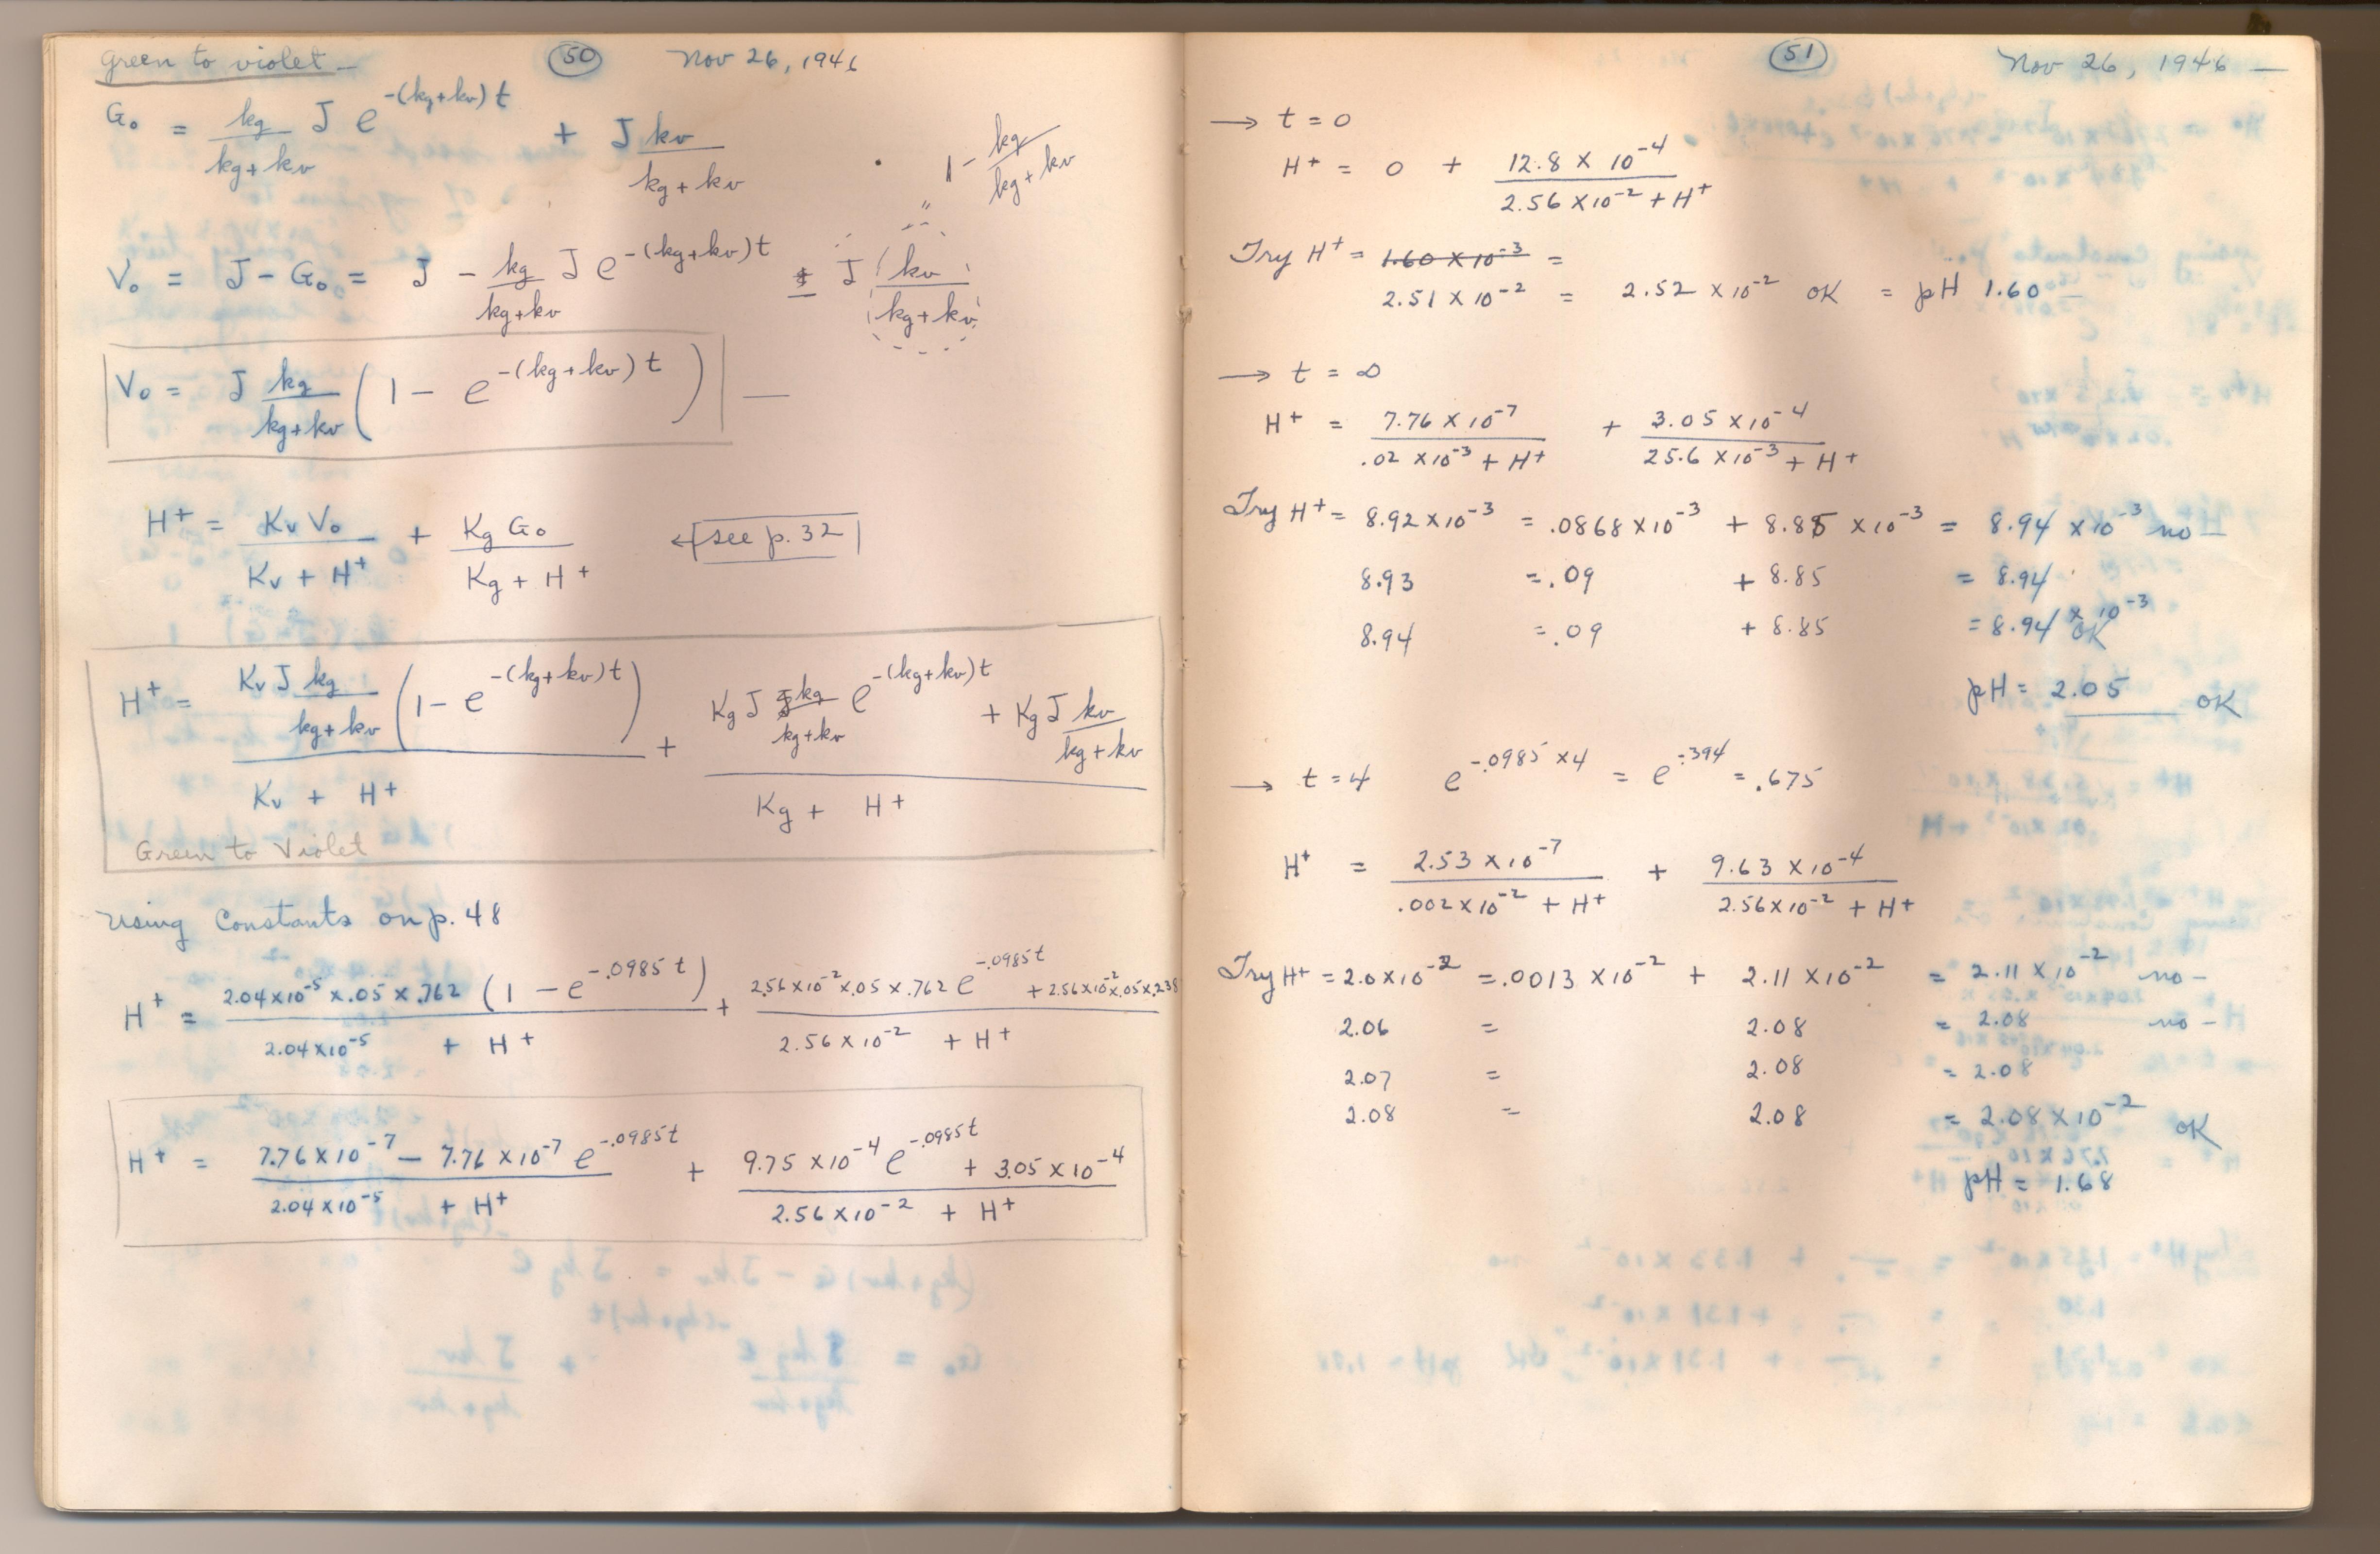 Green to violet — (50) Nov 26, 1946
G₀ = kg/(kg+kv) J e^-(kg+kv)t + J kv/(kg+kv)
1 - kg/(kg+kv)
"
V₀ = J - G₀ = J - kg/(kg+kv) J e^-(kg+kv)t ± J kv/(kg+kv)
V₀ = J kg/(kg+kv) (1 - e^-(kg+kv)t) —
H⁺ = Kv V₀/(Kv + H⁺) + Kg G₀/(Kg + H⁺) ← see p. 32
H⁺ = Kv J kg/(kg+kv) (1 - e^-(kg+kv)t)/(Kv + H⁺) + (Kg J kg/(kg+kv) e^-(kg+kv)t + Kg J kv/(kg+kv))/(Kg + H⁺)
Green to Violet
Using Constants on p. 48
H⁺ = 2.04×10⁻⁵ × .05 × .762 (1 - e^-.0985t)/(2.04×10⁻⁵ + H⁺) + (2.56×10⁻² × .05 × .762 e^-.0985t + 2.56×10⁻² × .05 × .238)/(2.56×10⁻² + H⁺)
H⁺ = (7.76×10⁻⁷ - 7.76×10⁻⁷ e^-.0985t)/(2.04×10⁻⁵ + H⁺) + (9.75×10⁻⁴ e^-.0985t + 3.05×10⁻⁴)/(2.56×10⁻² + H⁺)
(51) Nov 26, 1946 —
→ t = 0
H⁺ = 0 + 12.8 × 10⁻⁴/(2.56×10⁻² + H⁺)
Try H⁺ = 1.60×10⁻³ =
2.51×10⁻² = 2.52×10⁻² OK = pH 1.60 —
→ t = ∞
H⁺ = 7.76×10⁻⁷/(.02×10⁻³ + H⁺) + 3.05×10⁻⁴/(25.6×10⁻³ + H⁺)
Try H⁺ = 8.92×10⁻³ = .0868×10⁻³ + 8.85×10⁻³ = 8.94×10⁻³ no —
8.93 = .09 + 8.85 = 8.94
8.94 = .09 + 8.85 = 8.94×10⁻³ OK
pH = 2.05 OK
→ t = 4 e^-.0985×4 = e^-.394 = .675
H⁺ = 2.53×10⁻⁷/(.002×10⁻² + H⁺) + 9.63×10⁻⁴/(2.56×10⁻² + H⁺)
Try H⁺ = 2.0×10⁻² = .0013×10⁻² + 2.11×10⁻² = 2.11×10⁻² no —
2.06 = 2.08 = 2.08 no —
2.07 = 2.08 = 2.08
2.08 = 2.08 = 2.08×10⁻² OK
pH = 1.68